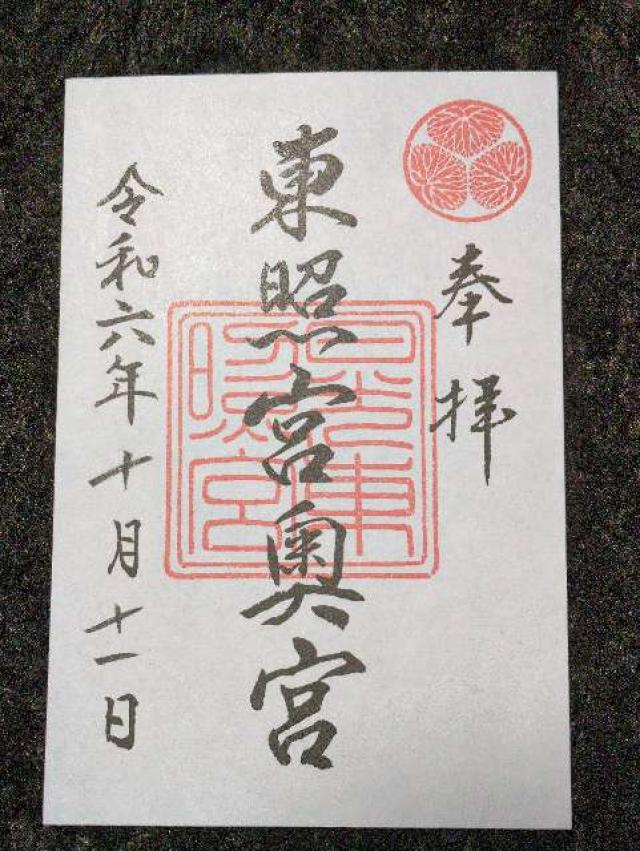 奉拝
東照宮奥宮
日光東照宮
令和六年十月十一日